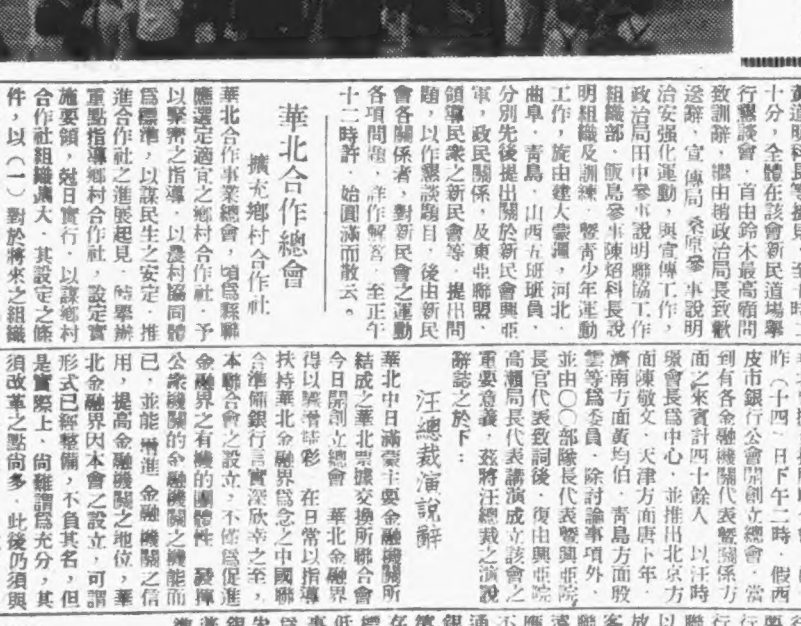 十分，全體在該會新民道場舉
行懇談會，首由鈴木最高顧問
致訓辭，繼由趙政治局長致歡
送辭，宣傳局 桑原參事說明
治安强化運動，與宣傳工作，
政治局田中參事說明聯協工作
組織部 飯島參事陳炤科長說
明組織及訓練，暨靑少年運動
工作，旋由建大蒙疆，河北，
曲阜，靑島，山西五班班員，
分別先後提出關於新民會與亞
軍，政民關係，及東亞聯盟，
領導民衆之新民會等，提出問
題，以作懇談題目，後由新民
會各關係者，對新民會之運動
各項問題，詳作解答，至正午
十二時許，始圓滿而散云。
華北合作總會
擴充鄕村合作社
華北合作事業總會，頃爲縣聯
應選定適宜之鄕村合作社，予
以緊密之指導，以農村協同體
爲標準，以謀民生之安定，推
進合作社之進展起見，特舉辦
重點指導鄕村合作社，設定實
施要領，尅日實行，以謀鄕村
合作社組織擴大，其設定之條
件，以（一）對於將來之組織
昨（十四）日下午二時，假西
皮市銀行公會開創立總會，當
到有各金融機關代表暨關係方
面之來賓計四十餘人，以汪時
璟會長爲中心，並推出北京方
面陳敬文，天津方面唐卜年，
濟南方面黃均伯，靑島方面殷
雲等爲委員，除討論事項外，
並由〇〇部隊長代表暨興亞院
長官代表致詞後，復由興亞院
高瀨局長代表講演成立該會之
重要意義，茲將汪總裁之演說
辭誌之於下：
汪總裁演說辭
華北中日滿蒙主要金融機關所
結成之華北票據交換所聯合會
今日開創立總會，華北金融界
得以驟增精彩，在日常以指導
扶持華北金融界爲念之中國聯
合準備銀行言實深欣幸之至，
本聯合會之設立，不僅爲促進
金融界之有機的團體性，發揮
公衆機關的金融機關之機能而
已，並能增進金融機關之信
用，提高金融機關之地位，華
北金融界因本會之設立，可謂
形式已經整備，不負其名，但
是實際上，尙難謂爲充分，其
須改革之點尙多，此後仍須與